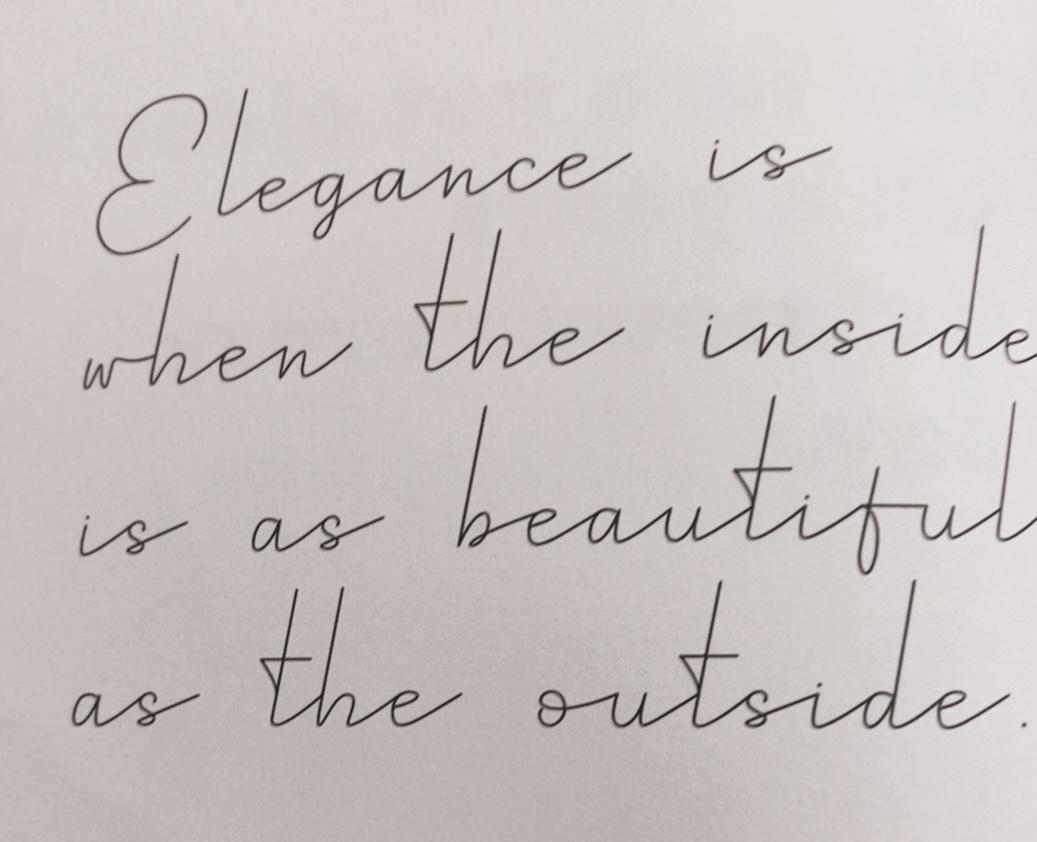 Elegance is
when the inside
is as beautiful
as the outside.